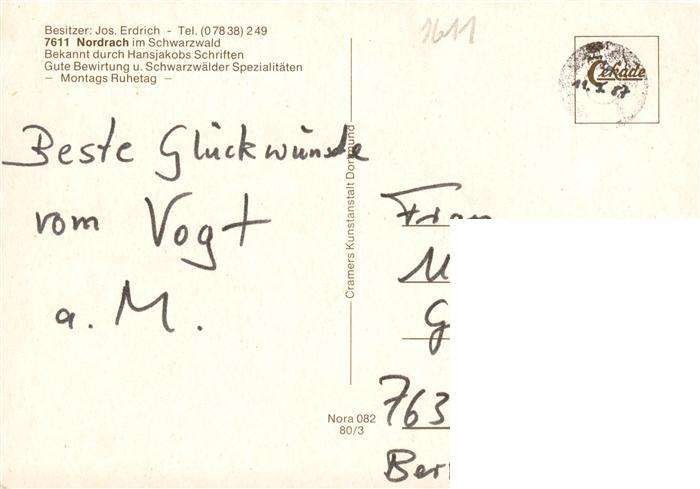 Besitzer: Jos. Erdrich - Tel. (0 78 38) 2 49
7611 Nordrach im Schwarzwald
Bekannt durch Hansjakobs Schriften
Gute Bewirtung u. Schwarzwälder Spezialitäten
- Montags Ruhetag -
Beste Glückwünsche
vom Vogt
a. M.
Cramers Kunstanstalt Dortmund
Nora 082
80/3
7611
Cekade
Frau
M
G
763
Ber